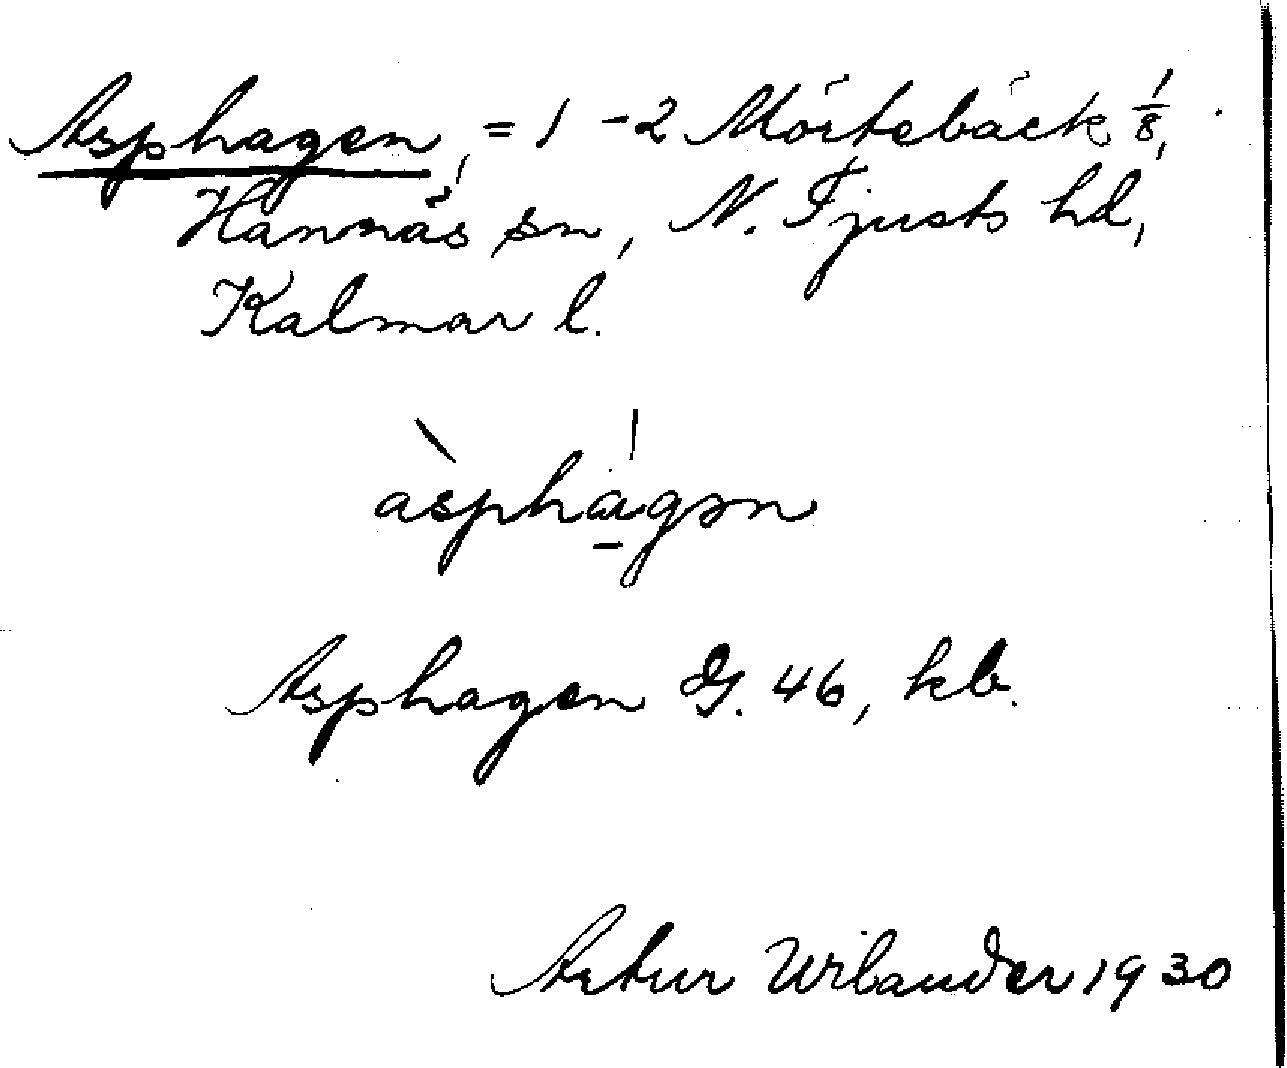 Asphagen, = 1 - 2 Mörtebäck 1/8,
Hannäs sn, N. Tjusts hd,
Kalmar l.
àsphágən
Asphagen G. 46, kb.
Artur Wilander 1930